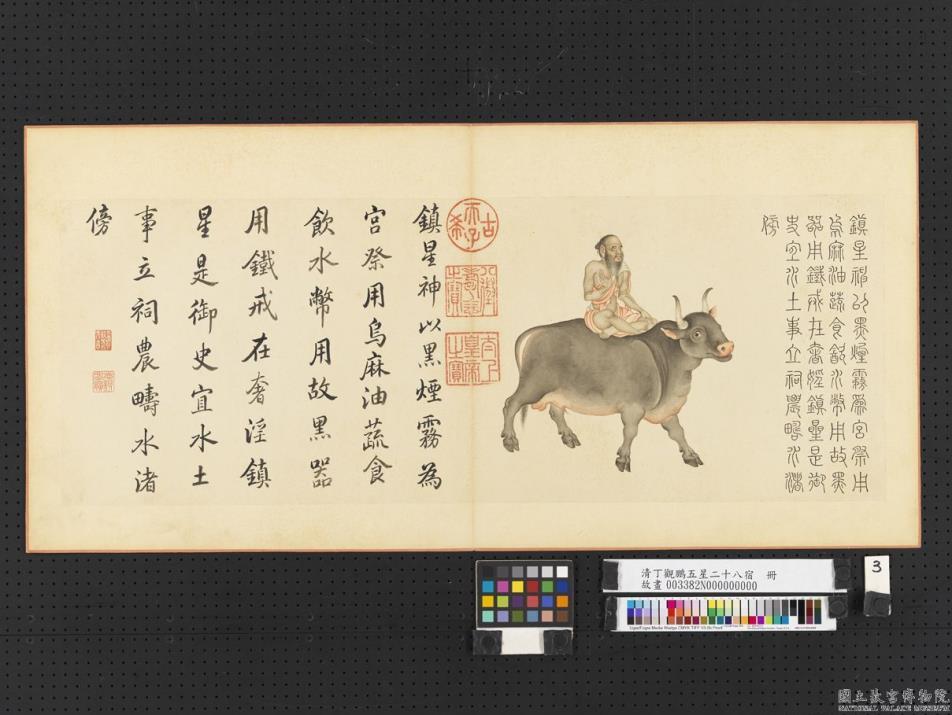 鎮星神以黑煙霧為宮祭用
烏麻油蔬食飲水幣用故黑
器用鐵戒在奢淫鎮星是御
史宜水土事立祠農疇水渚
傍
古希天子
八徵耄念之寶
太上皇帝之寶
鎮星神以黑煙霧為
宮祭用烏麻油蔬食
飲水幣用故黑器
用鐵戒在奢淫鎮
星是御史宜水土
事立祠農疇水渚
傍
清丁觀鵬五星二十八宿 冊
故畫 003382N000000000
3
國立故宮博物院
NATIONAL PALACE MUSEUM